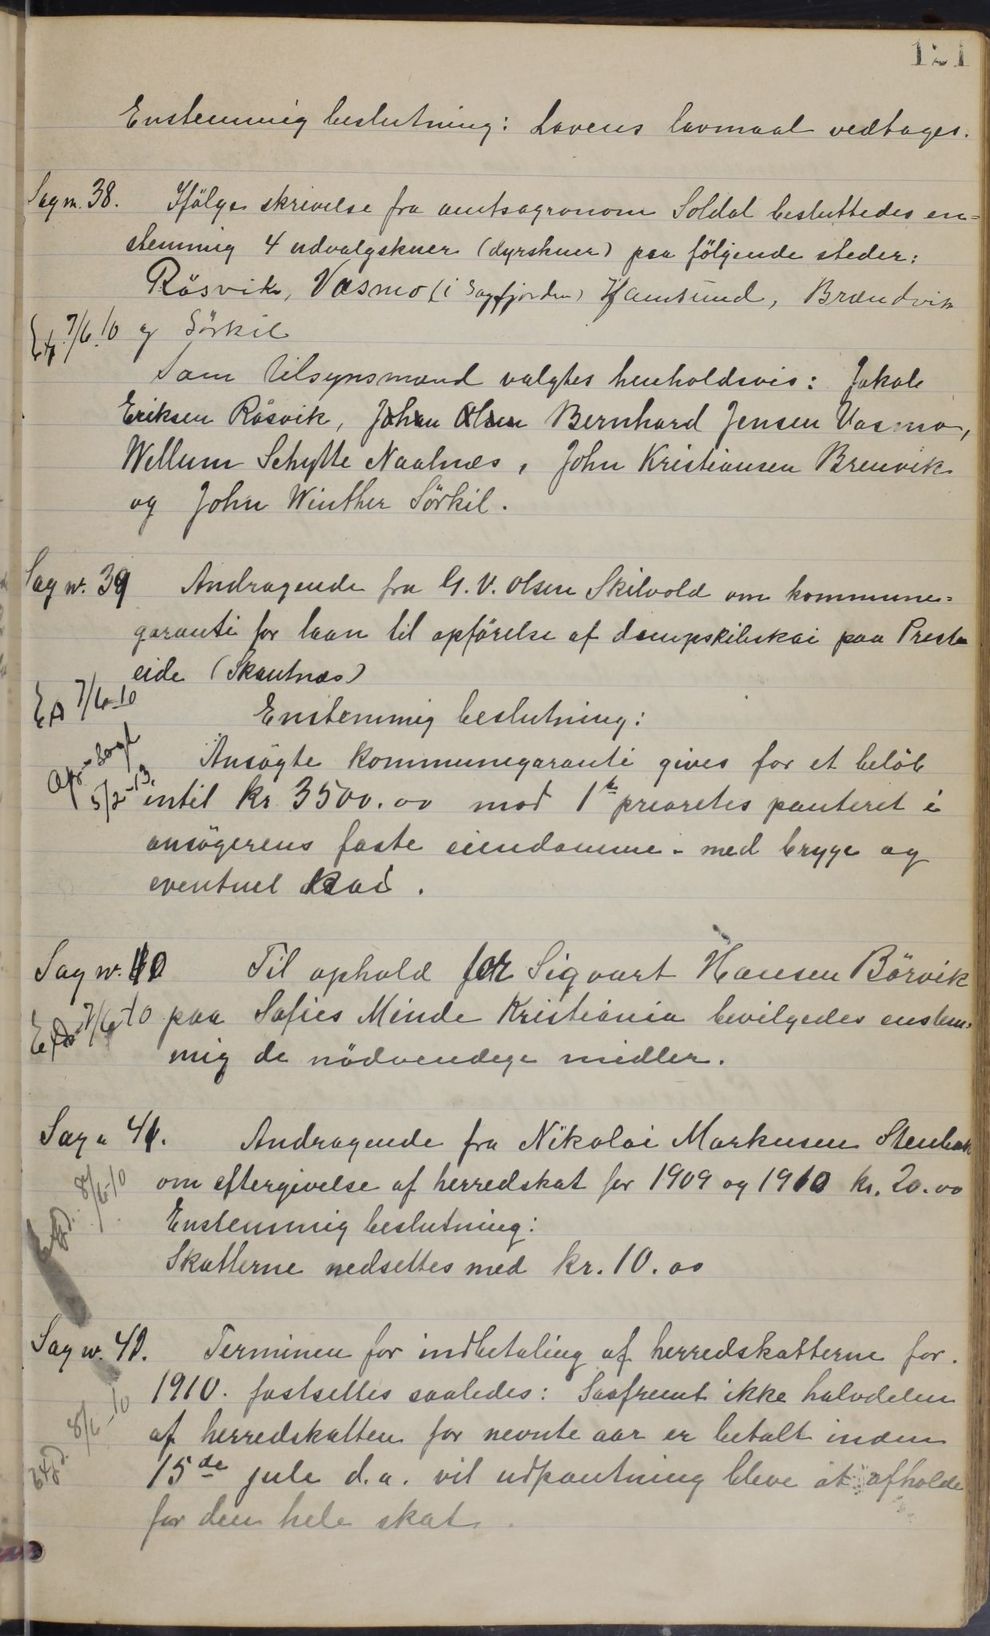 121
Enstemmig beslutning: Lovens lavmaal vedtages.
Sag nr. 38. Ifölge skrivelse fra amtsagronom Soldal besluttedes en=
stemmig 4 udvalgskuer (dyrskuer) paa fölgende steder:
Rösvik, Vasmo (i Sagfjorden) Hamsund, Brændvik
Exp 7/6 10 og Sörkil
Som tilsynsmænd valgtes henholdsvis: Jakob
Eriksen Rösvik, Johan Olsen Bernhard Jensen Vasmo,
Wellum Schytte Naalnæs, John Kristiansen Brenvik
og John Winther Sörkil.
Sag nr. 39 Andragende fra G. V. Olsen Skilvold om kommune=
garanti for laan til opförelse af dampskibskai paa Preste
eide (Skutnæs)
Exp 7/6-10
Enstemmig beslutning:
Afsagt
5/2-13.
Ansögte kommunegaranti gives for et belöb
intil kr 3500.00 mod 1ste prioretes panteret i
ansögerens faste eiendomme - med brygge og
eventuel kai.
Sag nr. 40 Til ophold for Sigvart Hansen Börvik
Exp 7/6-10 paa Sofies Minde Kristiania bevilgedes enstem=
mig de nödvendige midler.
Sag n 41. Andragende fra Nikolai Markusen Stenbak
om eftergivelse af herredskat for 1909 og 1910 kr. 20.00
Exp. 8/6-10
Enstemmig beslutning:
Skatterne nedsettes med kr. 10.00
Sag nr. 42. Terminen for indbetaling af herredskatterne for.
1910. fastsettes saaledes: Saafremt ikke halvdelen
Exp. 8/6-10
af herredskatten for nevnte aar er betalt inden
15de jule d.a. vil udpantning bleve at afholde
for den hele skat.